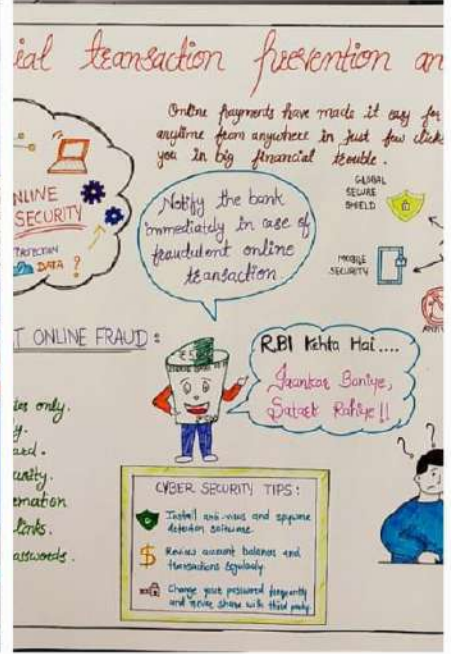 ial transaction prevention an
Online payments have made it easy for
anytime from anywhere in just few clicks
you in big financial trouble.
NLINE
SECURITY
DATA ?
Notify the bank
immediately in case of
fraudulent online
transaction.
GLOBAL
SECURE
SHIELD
MOBILE
SECURITY
T ONLINE FRAUD:
RBI Kehta Hai....
Jaankar Baniye,
Satark Rahiye!!
ies only.
y.
ard.
urity.
rmation
links.
asswords.
CYBER SECURITY TIPS:
Install anti-virus and spyware
detection software.
$ Review account balances and
transactions regularly.
Change your password frequently
and never share with third party.
? ?